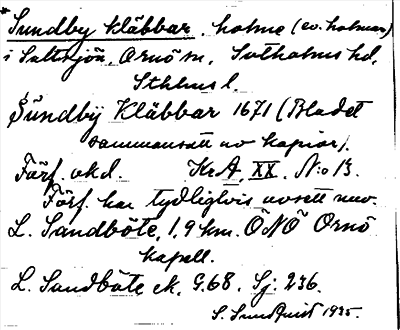 * Sundby kläbbar, holme (ev. holmar)
i Saltsjön, Ornö sn. Sotholms hd,
Sthlms l.
Sundbÿ Kläbbar 1671 (Bladet
sammansatt av kopior).
Förf. okd. KrA, XX. N:o 13.
Förf. har tydligtvis avsett nuv.
L. Sandböte, 1,9 km. ÖNÖ Ornö
kapell.
L. Sandböte ek. G.68. Sj. 236.
S. Sundquist 1935.